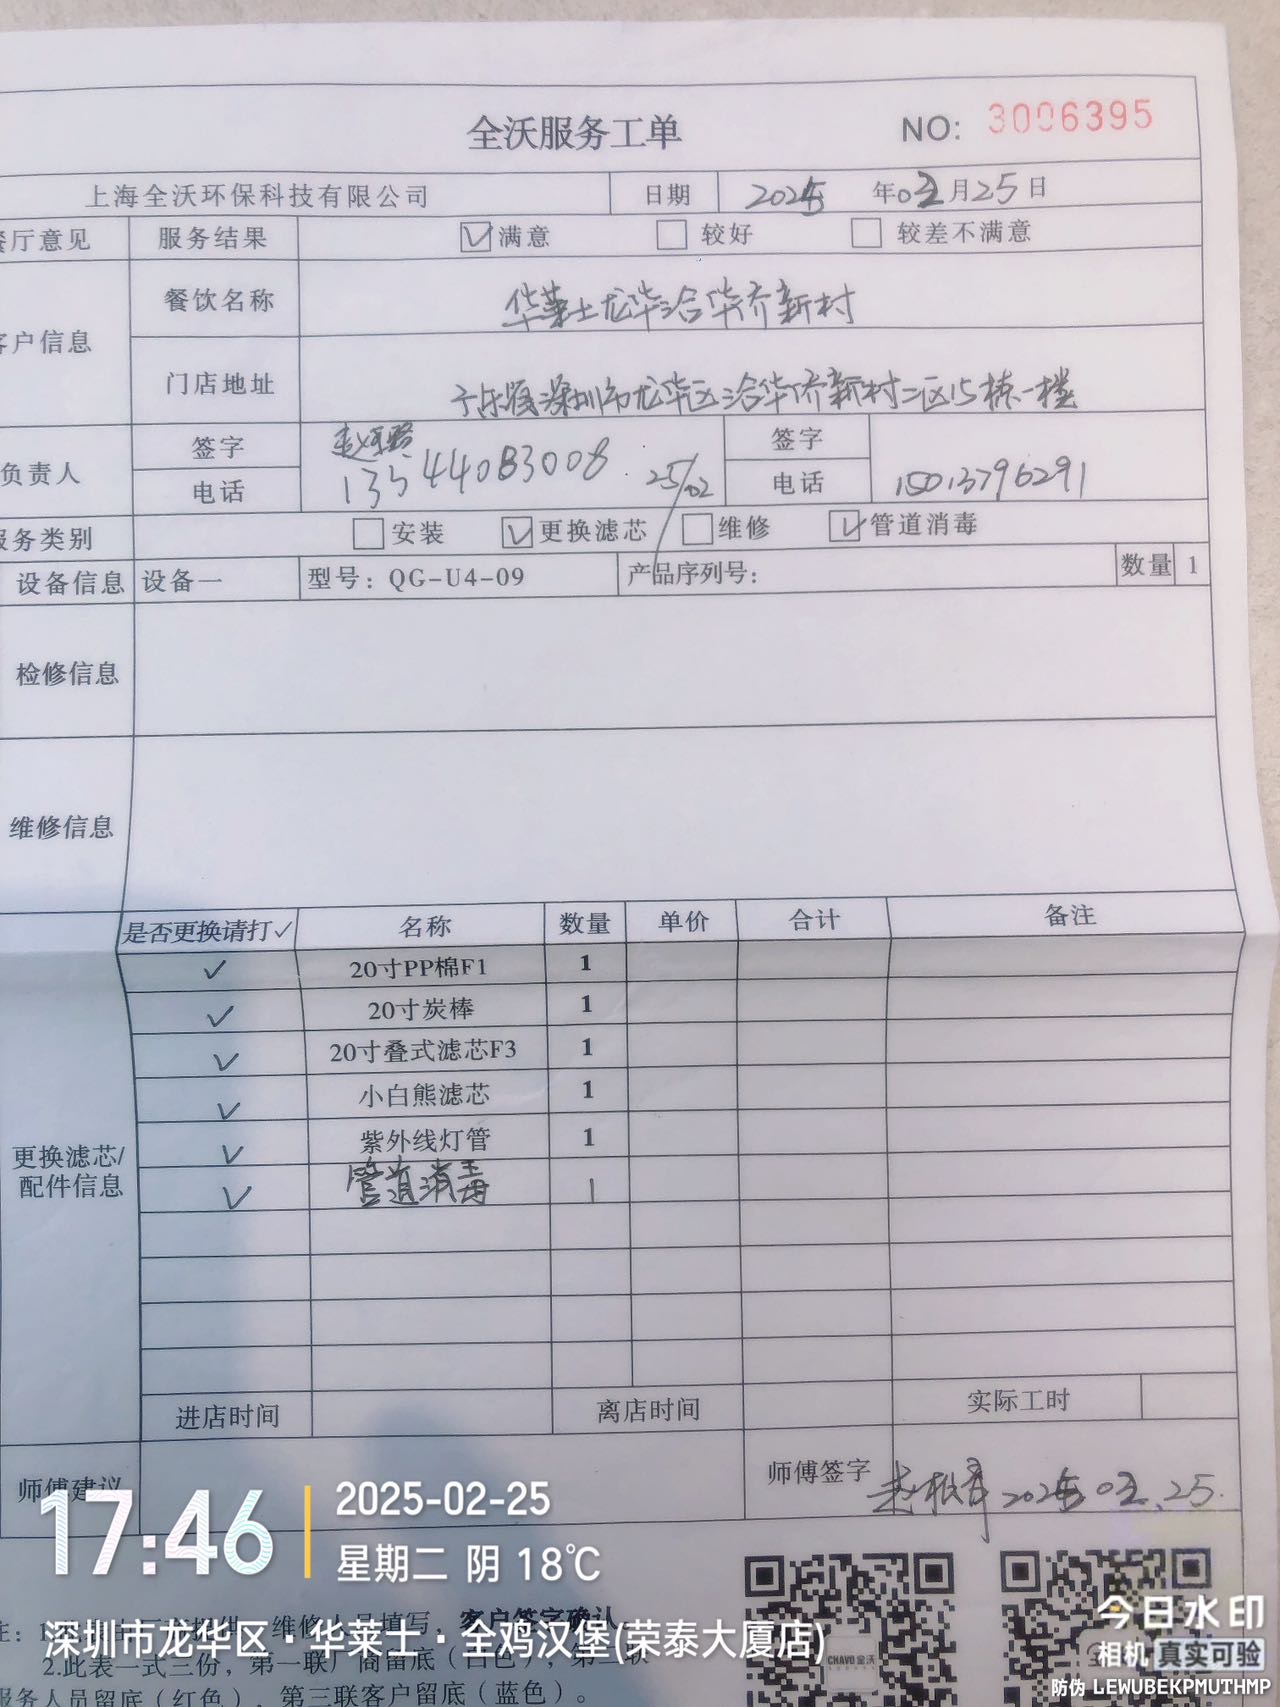 全沃服务工单 NO: 3006395
上海全沃环保科技有限公司 日期 2025 年02月25日
餐厅意见 服务结果 ☑满意 □较好 □较差不满意
客户信息 餐饮名称 华莱士龙华洽华侨新村
门店地址 广东省深圳市龙华区洽华侨新村二区15栋一楼
负责人 签字 签字
电话 13544083008 25/02 电话 15013796291
服务类别 □安装 ☑更换滤芯 □维修 ☑管道消毒
设备信息 设备一 型号：QG-U4-09 产品序列号： 数量 1
检修信息
维修信息
是否更换请打✓ 名称 数量 单价 合计 备注
✓ 20寸PP棉F1 1
✓ 20寸炭棒 1
✓ 20寸叠式滤芯F3 1
✓ 小白熊滤芯 1
✓ 紫外线灯管 1
更换滤芯/
配件信息
✓ 管道消毒 1
进店时间 离店时间 实际工时
师傅建议 师傅签字 2025.02.25.
17:46
2025-02-25
星期二 阴 18℃
深圳市龙华区·华莱士·全鸡汉堡(荣泰大厦店)
客户签字确认
2.此表一式三份，第一联厂商留底（白色），第二联
服务人员留底（红色），第三联客户留底（蓝色）。
CHAVO全沃
今日水印
相机 真实可验
防伪 LEWUBEKPMUTHMP